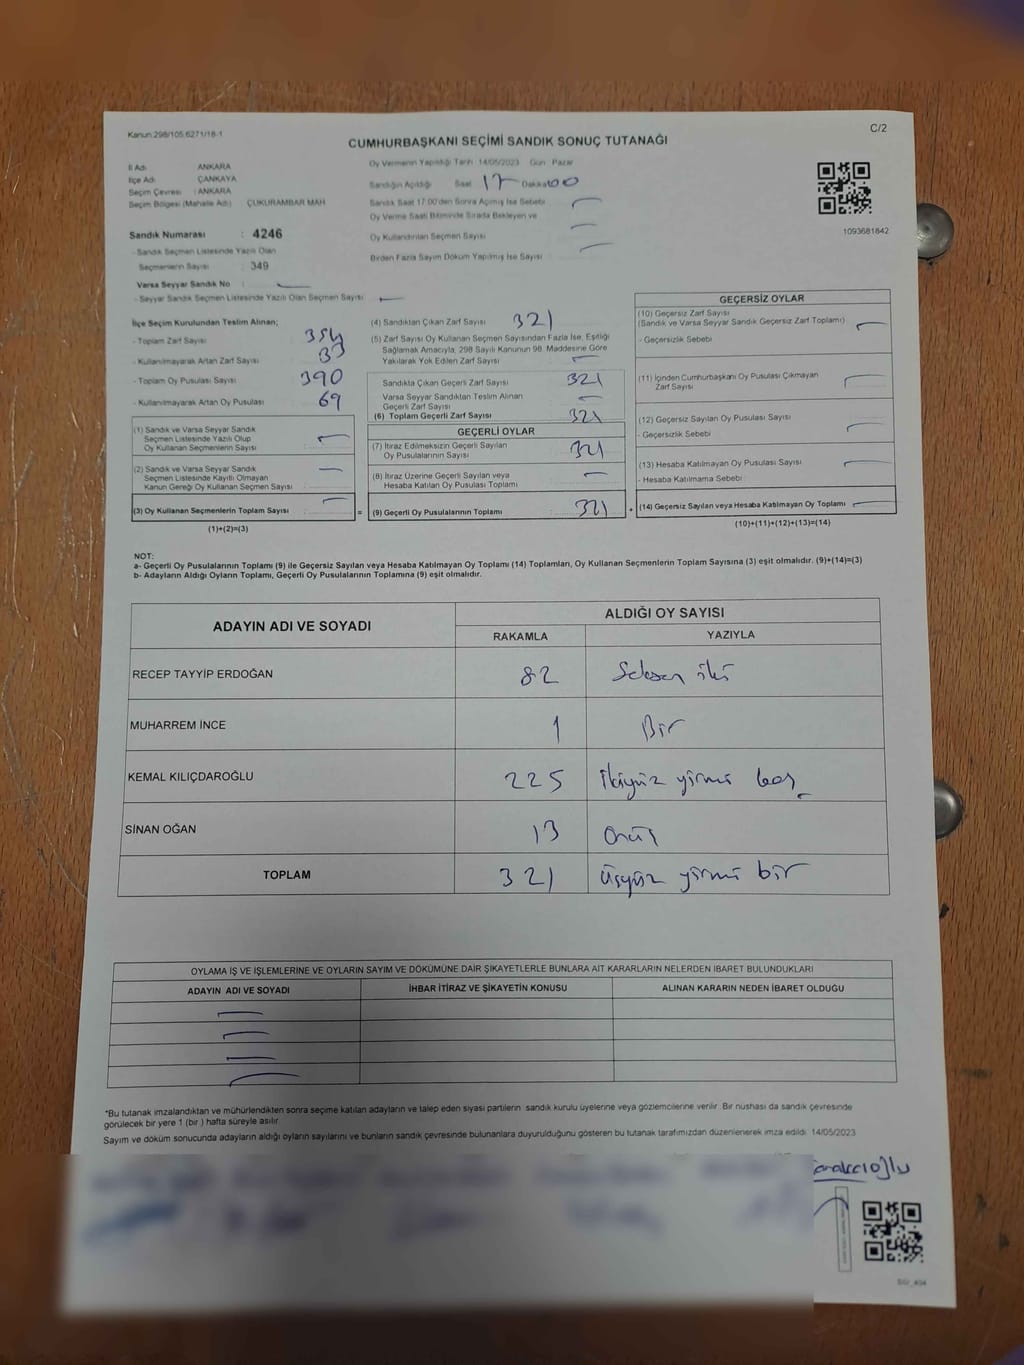 Kanun:298/105.6271/18-1
C/2
CUMHURBAŞKANI SEÇİMİ SANDIK SONUÇ TUTANAĞI
İl Adı : ANKARA
İlçe Adı : ÇANKAYA
Seçim Çevresi : ANKARA
Seçim Bölgesi (Mahalle Adı) : ÇUKURAMBAR MAH
Sandık Numarası : 4246
- Sandık Seçmen Listesinde Yazılı Olan
Seçmenlerin Sayısı : 349
Varsa Seyyar Sandık No :
- Seyyar Sandık Seçmen Listesinde Yazılı Olan Seçmen Sayısı :
Oy Vermenin Yapıldığı Tarih 14/05/2023 Gün Pazar
Sandığın Açıldığı Saat 17 Dakika 00
Sandık Saat 17.00'den Sonra Açılmış İse Sebebi
Oy Verme Saati Bitiminde Sırada Bekleyen ve
Oy Kullandırılan Seçmen Sayısı
Birden Fazla Sayım Döküm Yapılmış İse Sayısı
1093681842
İlçe Seçim Kurulundan Teslim Alınan;
- Toplam Zarf Sayısı 354
- Kullanılmayarak Artan Zarf Sayısı 33
- Toplam Oy Pusulası Sayısı 390
- Kullanılmayarak Artan Oy Pusulası 69
(1) Sandık ve Varsa Seyyar Sandık
Seçmen Listesinde Yazılı Olup
Oy Kullanan Seçmenlerin Sayısı
(2) Sandık ve Varsa Seyyar Sandık
Seçmen Listesinde Kayıtlı Olmayan
Kanun Gereği Oy Kullanan Seçmen Sayısı
(3) Oy Kullanan Seçmenlerin Toplam Sayısı
(1)+(2)=(3)
(4) Sandıktan Çıkan Zarf Sayısı 321
(5) Zarf Sayısı Oy Kullanan Seçmen Sayısından Fazla İse, Eşitliği
Sağlamak Amacıyla, 298 Sayılı Kanunun 98. Maddesine Göre
Yakılarak Yok Edilen Zarf Sayısı
Sandıkta Çıkan Geçerli Zarf Sayısı 321
Varsa Seyyar Sandıktan Teslim Alınan
Geçerli Zarf Sayısı
(6) Toplam Geçerli Zarf Sayısı 321
GEÇERLİ OYLAR
(7) İtiraz Edilmeksizin Geçerli Sayılan
Oy Pusulalarının Sayısı 321
(8) İtiraz Üzerine Geçerli Sayılan veya
Hesaba Katılan Oy Pusulası Toplamı
= (9) Geçerli Oy Pusulalarının Toplamı 321 +
GEÇERSİZ OYLAR
(10) Geçersiz Zarf Sayısı
(Sandık ve Varsa Seyyar Sandık Geçersiz Zarf Toplamı)
- Geçersizlik Sebebi
(11) İçinden Cumhurbaşkanı Oy Pusulası Çıkmayan
Zarf Sayısı
(12) Geçersiz Sayılan Oy Pusulası Sayısı
- Geçersizlik Sebebi
(13) Hesaba Katılmayan Oy Pusulası Sayısı
- Hesaba Katılmama Sebebi
(14) Geçersiz Sayılan veya Hesaba Katılmayan Oy Toplamı
(10)+(11)+(12)+(13)=(14)
NOT:
a- Geçerli Oy Pusulalarının Toplamı (9) ile Geçersiz Sayılan veya Hesaba Katılmayan Oy Toplamı (14) Toplamları, Oy Kullanan Seçmenlerin Toplam Sayısına (3) eşit olmalıdır. (9)+(14)=(3)
b- Adayların Aldığı Oyların Toplamı, Geçerli Oy Pusulalarının Toplamına (9) eşit olmalıdır.
ADAYIN ADI VE SOYADI
ALDIĞI OY SAYISI
RAKAMLA YAZIYLA
RECEP TAYYİP ERDOĞAN 82 Seksen iki
MUHARREM İNCE 1 Bir
KEMAL KILIÇDAROĞLU 225 İkiyüz yirmi beş
SİNAN OĞAN 13 Onüç
TOPLAM 321 üçyüz yirmi bir
OYLAMA İŞ VE İŞLEMLERİNE VE OYLARIN SAYIM VE DÖKÜMÜNE DAİR ŞİKAYETLERLE BUNLARA AİT KARARLARIN NELERDEN İBARET BULUNDUKLARI
ADAYIN ADI VE SOYADI İHBAR İTİRAZ VE ŞİKAYETİN KONUSU ALINAN KARARIN NEDEN İBARET OLDUĞU
*Bu tutanak imzalandıktan ve mühürlendikten sonra seçime katılan adayların ve talep eden siyasi partilerin sandık kurulu üyelerine veya gözlemcilerine verilir. Bir nüshası da sandık çevresinde
görülecek bir yere 1 (bir) hafta süreyle asılır.
Sayım ve döküm sonucunda adayların aldığı oyların sayılarını ve bunların sandık çevresinde bulunanlara duyurulduğunu gösteren bu tutanak tarafımızdan düzenlenerek imza edildi. 14/05/2023